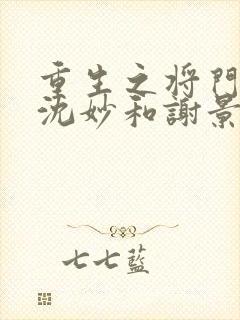 重生之将門
沈妙和謝景
七七藍